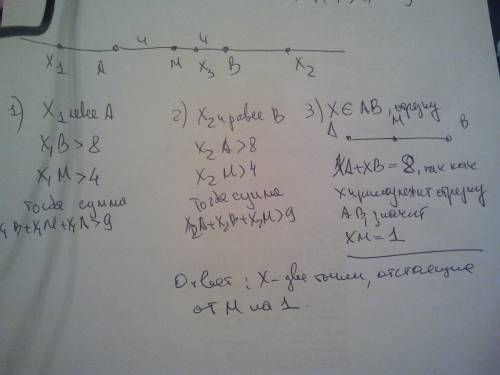 4 4
X₁ A M X₃ B X₂
1) X₁ левее A
X₁B > 8
X₁M > 4
Тогда сумма
X₁B + X₁M + X₁A > 9
2) X₂ правее B
X₂A > 8
X₂M > 4
Тогда сумма
X₂A + X₂B + X₂M > 9
3) X ∈ AB, отрезку
A M B
XA + XB = 8, так как
X принадлежит отрезку
AB, значит
XM = 1
Ответ: X – две точки, отстоящие
от M на 1.